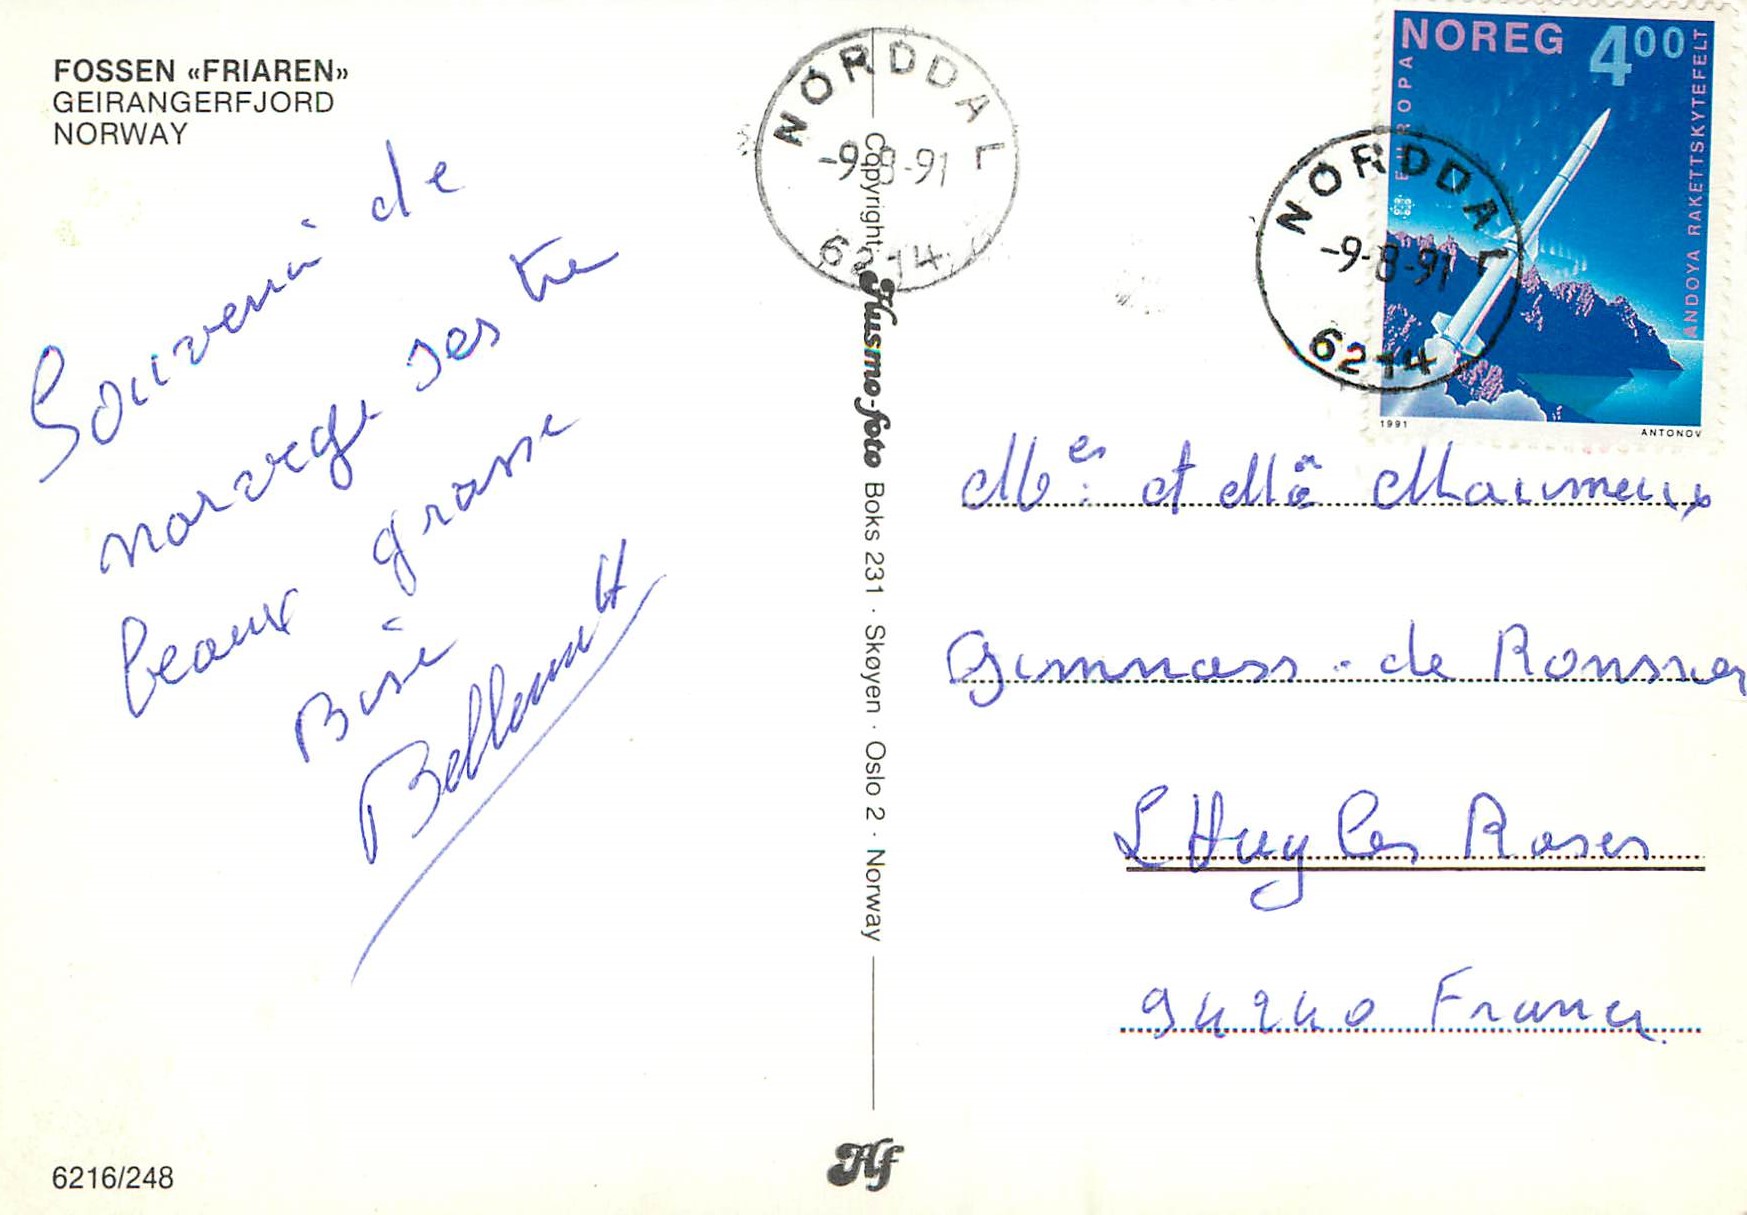 FOSSEN «FRIAREN»
GEIRANGERFJORD
NORWAY
Souvenir de
norvege ses tre
beaux grosse
Bise
Bellemutt
6216/248
NORDDAL
-9-8-91
6214
Copyright: Husmo-foto Boks 231 · Skøyen · Oslo 2 · Norway
Hf
NOREG 400
EUROPA
ANDØYA RAKETTSKYTEFELT
1991
ANTONOV
NORDDAL
-9-8-91
6214
et Maumeux
Gimnass - de
L Huy les Roses
94240 France